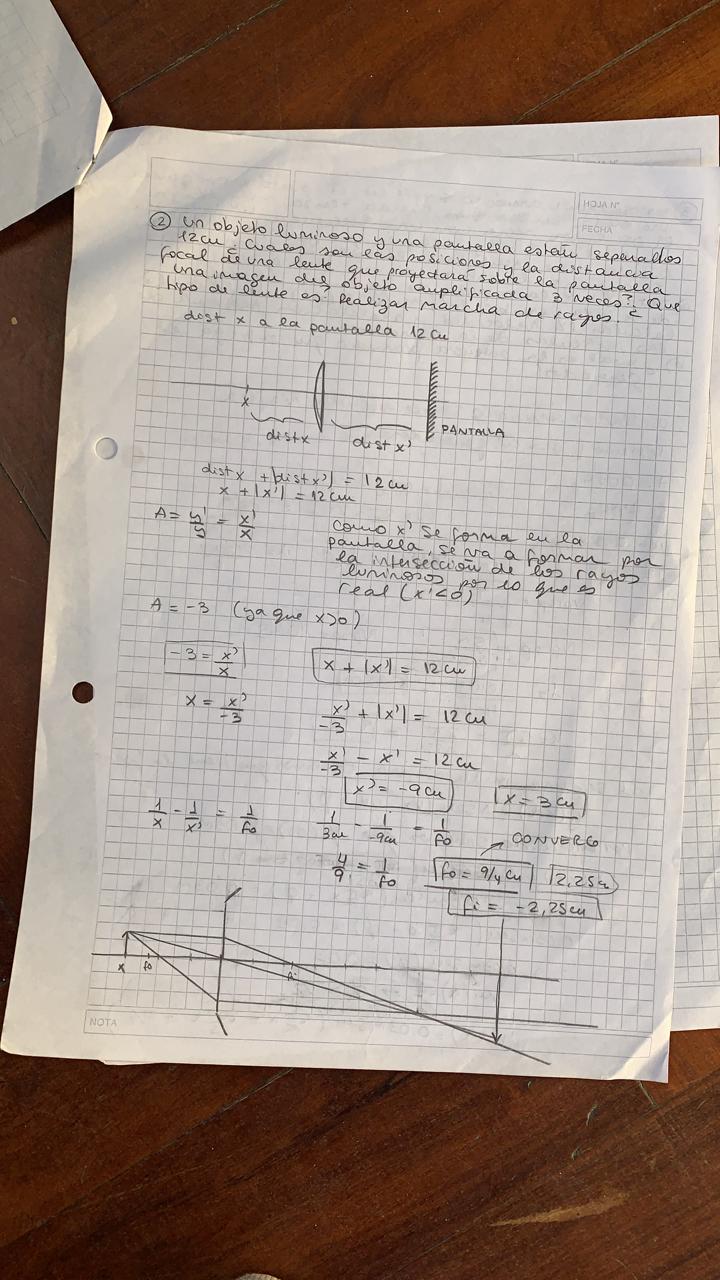 HOJA N°
FECHA
② Un objeto luminoso y una pantalla están separados
12cm ¿Cuáles son las posiciones y la distancia
focal de una lente que proyectará sobre la pantalla
una imagen del objeto amplificada 3 veces? Que
tipo de lente es? Realizar marcha de rayos.
dist x a la pantalla 12 cm
x
dist x
dist x'
PANTALLA
dist x + |dist x'| = 12 cm
x + |x'| = 12 cm
A = y'/y = x'/x
Como x' se forma en la
pantalla, se va a formar por
la intersección de los rayos
luminosos por lo que es
real (x'<0)
A = -3 (ya que x>0)
-3 = x'/x
x + |x'| = 12 cm
x = x'/-3
x'/-3 + |x'| = 12 cm
x'/-3 - x' = 12 cm
x' = -9 cm
x = 3 cm
1/x - 1/x' = 1/fo
1/3cm - 1/-9cm = 1/fo
CONVERG
4/9 = 1/fo
fo = 9/4 cm
2,25cm
fi = -2,25cm
x
fo
fi
NOTA